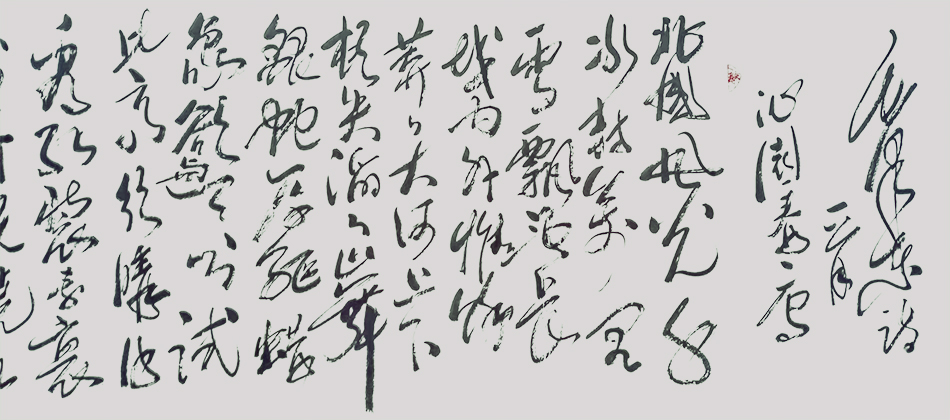 沁园春雪
北国风光千
里冰封万里
雪飘望长
城内外惟馀
莽々大河上下
顿失滔々山舞
银蛇原驰蜡
象欲与天公试
比高须晴日
看红装素裹